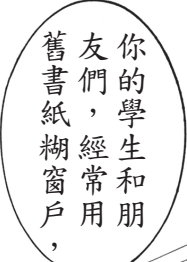 你的學生和朋
友們，經常用
舊書紙糊窗戶，